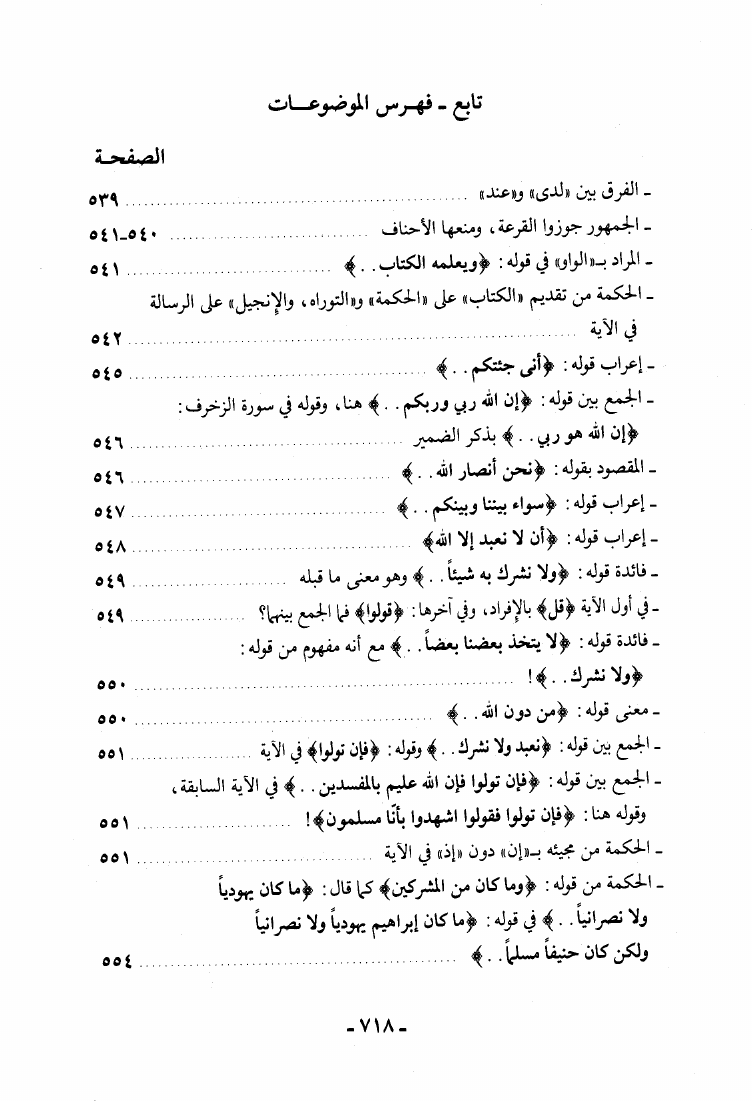 تابع - فهـرس الموضوعـــات
الصفحـة
- الفرق بين «لدى» و«عند» ٥٣٩
- الجمهور جوزوا القرعة، ومنعها الأحناف ٥٤٠-٥٤١
- المراد بـ«الواو» في قوله: ﴿ويعلمه الكتاب. .﴾ ٥٤١
- الحكمة من تقديم «الكتاب» على «الحكمة» و«التوراه، والإنجيل» على الرسالة
في الآية ٥٤٢
- إعراب قوله: ﴿أنى جئتكم. .﴾ ٥٤٥
- الجمع بين قوله: ﴿إن الله ربي وربكم. .﴾ هنا، وقوله في سورة الزخرف:
﴿إن الله هو ربي. .﴾ بذكر الضمير ٥٤٦
- المقصود بقوله: ﴿نحن أنصار الله. .﴾ ٥٤٦
- إعراب قوله: ﴿سواء بيننا وبينكم. .﴾ ٥٤٧
- إعراب قوله: ﴿أن لا نعبد إلا الله﴾ ٥٤٨
- فائدة قوله: ﴿ولا نشرك به شيئاً. .﴾ وهو معنى ما قبله ٥٤٩
- في أول الآية ﴿قل﴾ بالإفراد، وفي آخرها: ﴿قولوا﴾ فما الجمع بينهما؟ ٥٤٩
- فائدة قوله: ﴿لا يتخذ بعضنا بعضاً. .﴾ مع أنه مفهوم من قوله:
﴿ولا نشرك. .﴾! ٥٥٠
- معنى قوله: ﴿من دون الله. .﴾ ٥٥٠
- الجمع بين قوله: ﴿نعبد ولا نشرك. .﴾ وقوله: ﴿فإن تولوا﴾ في الآية ٥٥١
- الجمع بين قوله: ﴿فإن تولوا فإن الله عليم بالمفسدين. .﴾ في الآية السابقة،
وقوله هنا: ﴿فإن تولوا فقولوا اشهدوا بأنّا مسلمون﴾! ٥٥١
- الحكمة من مجيئه بـ«إن» دون «إذ» في الآية ٥٥١
- الحكمة من قوله: ﴿وما كان من المشركين﴾ كما قال: ﴿ما كان يهودياً
ولا نصرانياً. .﴾ في قوله: ﴿ما كان إبراهيم يهودياً ولا نصرانياً
ولكن كان حنيفاً مسلماً. .﴾ ٥٥٤
- ٧١٨ -